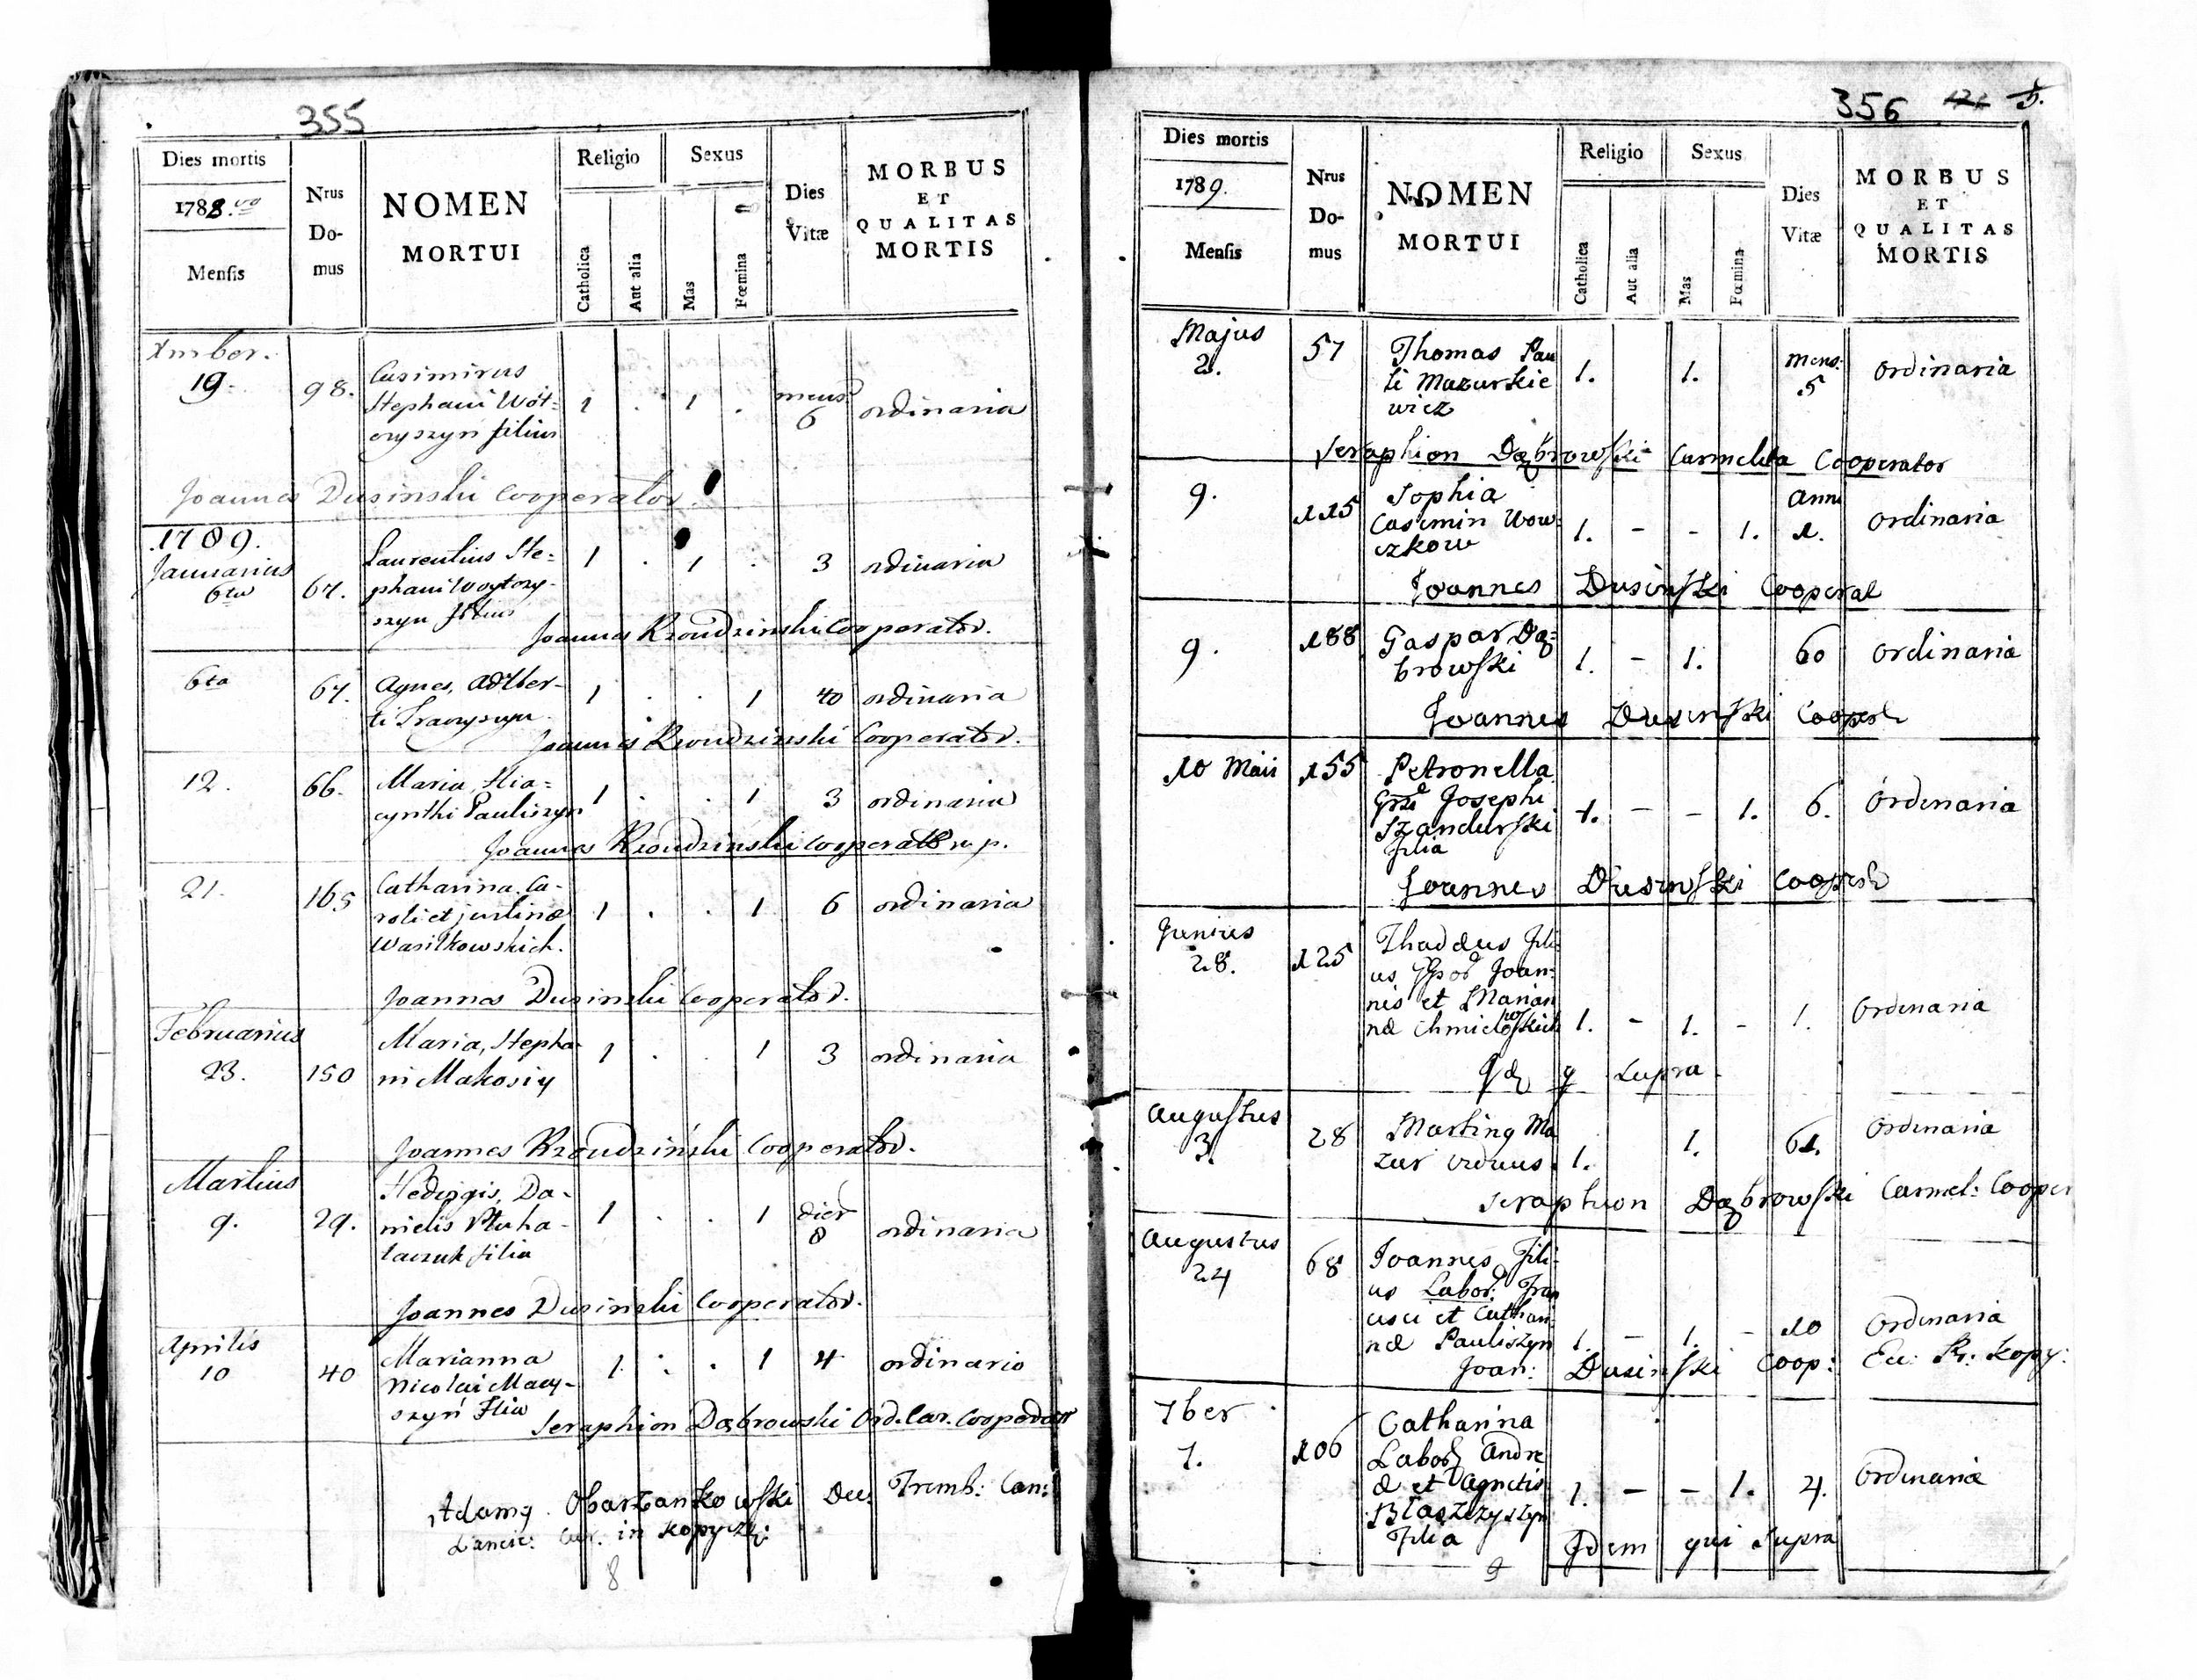 355
Dies mortis
1788.vo
Mensis
Nrus
Do-
mus
NOMEN
MORTUI
Religio
Catholica
Aut alia
Sexus
Mas
Fœmina
Dies
Vitæ
MORBUS
ET
QUALITAS
MORTIS
Xmber.
19.
98.
Casimirus
Stephani Woÿt=
oryszyn filius
1 . 1 .
mens
6
ordinaria
Joannes Dusinski Cooperator.
1789.
Januarius
6ta
67.
Laurentius Ste=
phani Woytory-
szyn filius
1 . 1 . 3 ordinaria
Joannes Rzoudzinski Cooperator.
6ta
67.
Agnes, Adlber-
ti
1 . . 1 40 ordinaria
Joannes Rzoudzinski Cooperator.
12.
66.
Maria, Hia=
cynthi Pauliszyn
1 . . 1 3 ordinaria
Joannes Rzoudzinski Cooperator m. p.
21.
165
Catharina, Ca-
roli et justinæ
Wasilkowskich.
1 . . 1 6 ordinaria
Joannes Dusinski Cooperator.
Februarius
23.
150
Maria, Stepha-
ni Makosiy
1 . . 1 3 ordinaria
Joannes Rzoudziński Cooperator.
Martius
9.
29.
Hedvigis, Da-
nielis
filia
1 . . 1
dier
8
ordinaria
Joannes Dusinski Cooperator.
Aprilis
10
40
Marianna
Nicolai Macy-
szyn filia
1 . . 1 4 ordinario
Seraphion Dąbrowski Ord. Car. Cooperator
Adamq Obarzankowski Dec: Tremb: Can:
Lancic: Cur. in Kopycz:
8
356
5.
Dies mortis
1789.
Mensis
Nrus
Do-
mus
NOMEN
MORTUI
Religio
Catholica
Aut alia
Sexus
Mas
Fœmina
Dies
Vitæ
MORBUS
ET
QUALITAS
MORTIS
Majus
2.
57
Thomas Pau
li Mazurkie
wicz
1. 1.
mens:
5
Ordinaria
Seraphion Dąbrowski Carmelita Cooperator
9.
115
Sophia
Casimiri Wow
czkow
1. - - 1.
Anni
1.
Ordinaria
Joannes Dusinski Cooperat
9.
188
Gaspar Dą=
browski
1. - 1. 60 Ordinaria
Joannes Dusinski Cooper
10 Maii
155
Petronella
Josephi
Szandurski
filia
1. - - 1. 6. Ordinaria
Joannes Dusinski Cooper
Junius
28.
125
Thaddeus fili
us Joan=
nis et Marian
næ Chmielowskich
1. - 1. - 1. Ordinaria
Supra
Augustus
3.
28
Martinq Ma
zur viduus
1. 1. 61. Ordinaria
Seraphion Dąbrowski Carmel: Cooper
Augustus
24
68
Joannes, Fili=
us Labor: Fran
cisci et Cathari
næ Pauliszyn
1. - 1. - 10 Ordinaria
Joan: Dusinski Coop: Ec: Kopy:
7ber
7.
106
Catharina
Labor: Andre
æ et Agnetis
Błaszczyszyn
filia
1. - - 1. 4. Ordinaria
Idem qui Supra
9